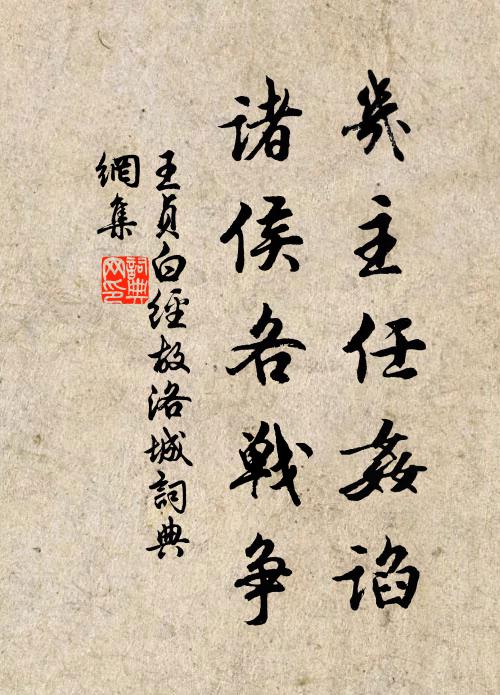 几主任姦諂
诸侯各戦争
王貞白經故洛城詞典
網集
詞典
网印